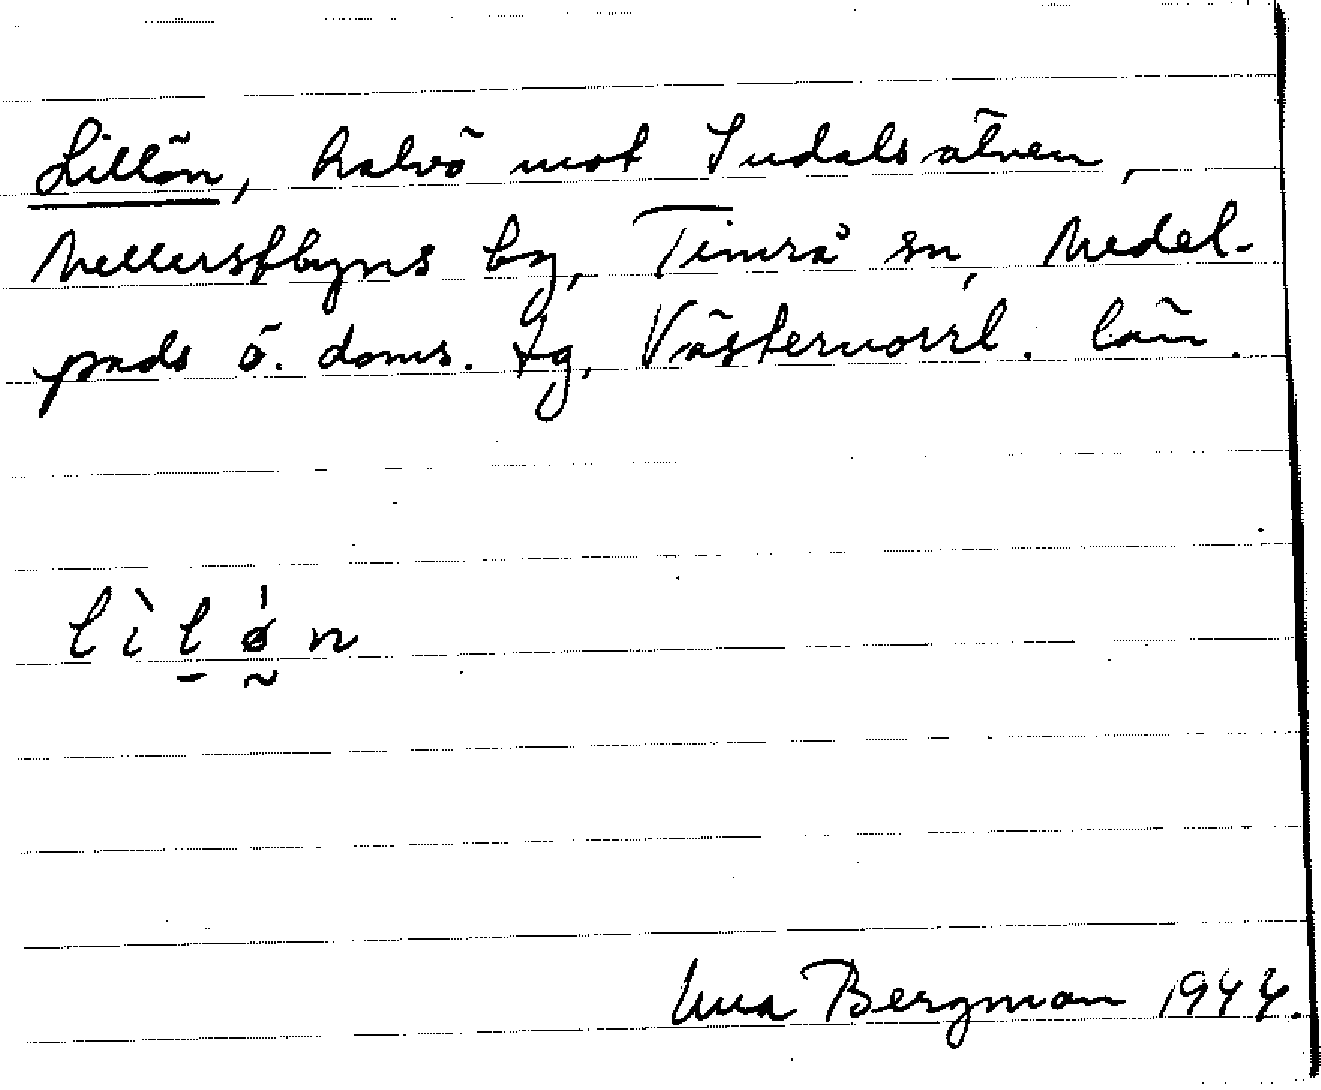 Lillön, halvö mot Indalsälven,
Mellerstbyns by, Timrå sn, Medel-
pads ö. doms. tg, Västernorrl. län.
lìlǿn
Bergman 1944.